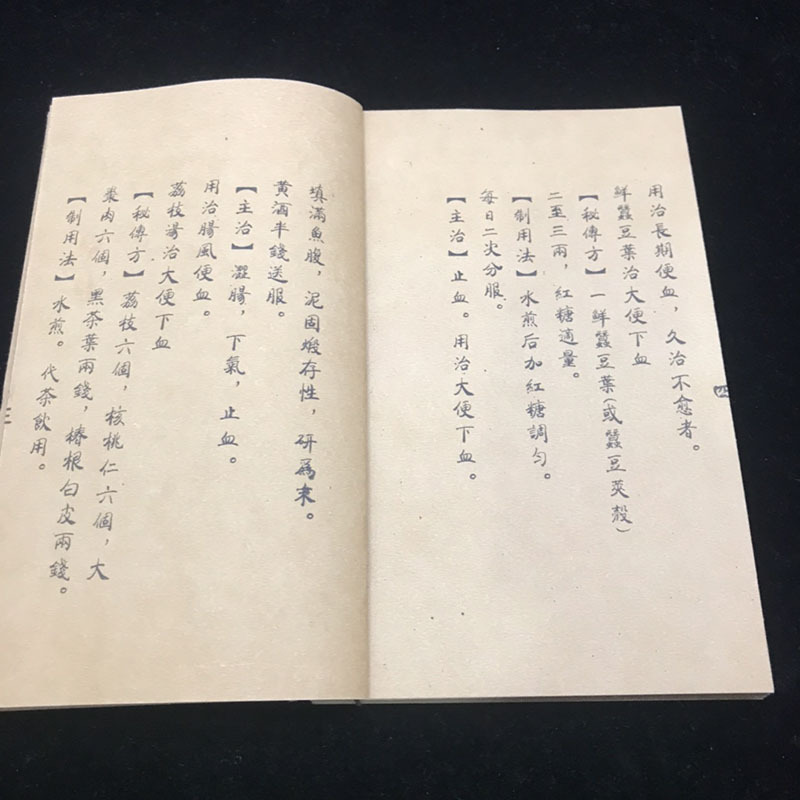 用治長期便血，久治不愈者。
鮮蠶豆葉治大便下血
【秘傳方】一鮮蠶豆葉（或蠶豆莢殼）
二至三兩，紅糖適量。
【制用法】水煎后加紅糖調勻。
每日二次分服。
【主治】止血。用治大便下血。
填滿魚腹，泥固煅存性，研為末。
黃酒半錢送服。
【主治】澀腸，下氣，止血。
用治腸風便血。
荔枝湯治大便下血
【秘傳方】荔枝六個，核桃仁六個，大
棗肉六個，黑茶葉兩錢，椿根白皮兩錢。
【制用法】水煎。代茶飲用。